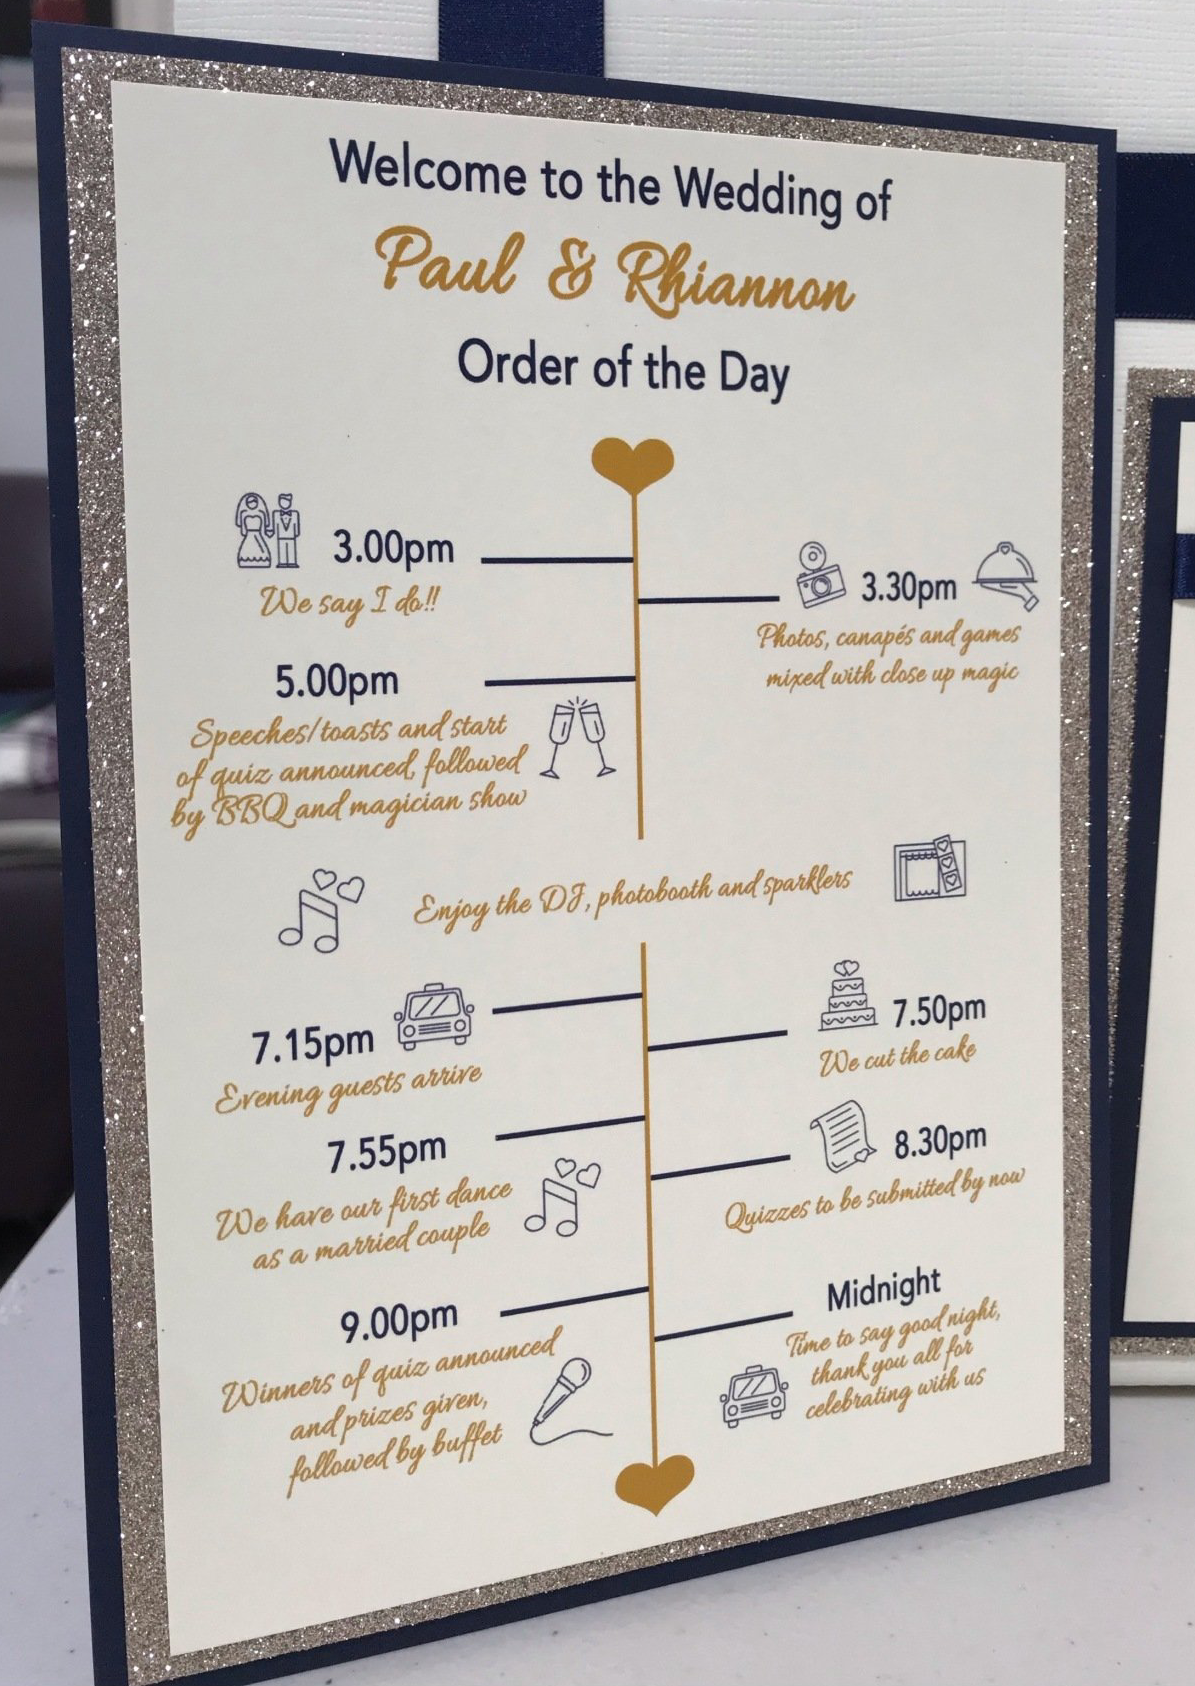 Welcome to the Wedding of
Paul & Rhiannon
Order of the Day
3.00pm
We say I do!!
3.30pm
Photos, canapés and games
mixed with close up magic
5.00pm
Speeches/toasts and start
of quiz announced, followed
by BBQ and magician show
Enjoy the DJ, photobooth and sparklers
7.15pm
Evening guests arrive
7.50pm
We cut the cake
7.55pm
We have our first dance
as a married couple
8.30pm
Quizzes to be submitted by now
9.00pm
Winners of quiz announced
and prizes given,
followed by buffet
Midnight
Time to say good night,
thank you all for
celebrating with us